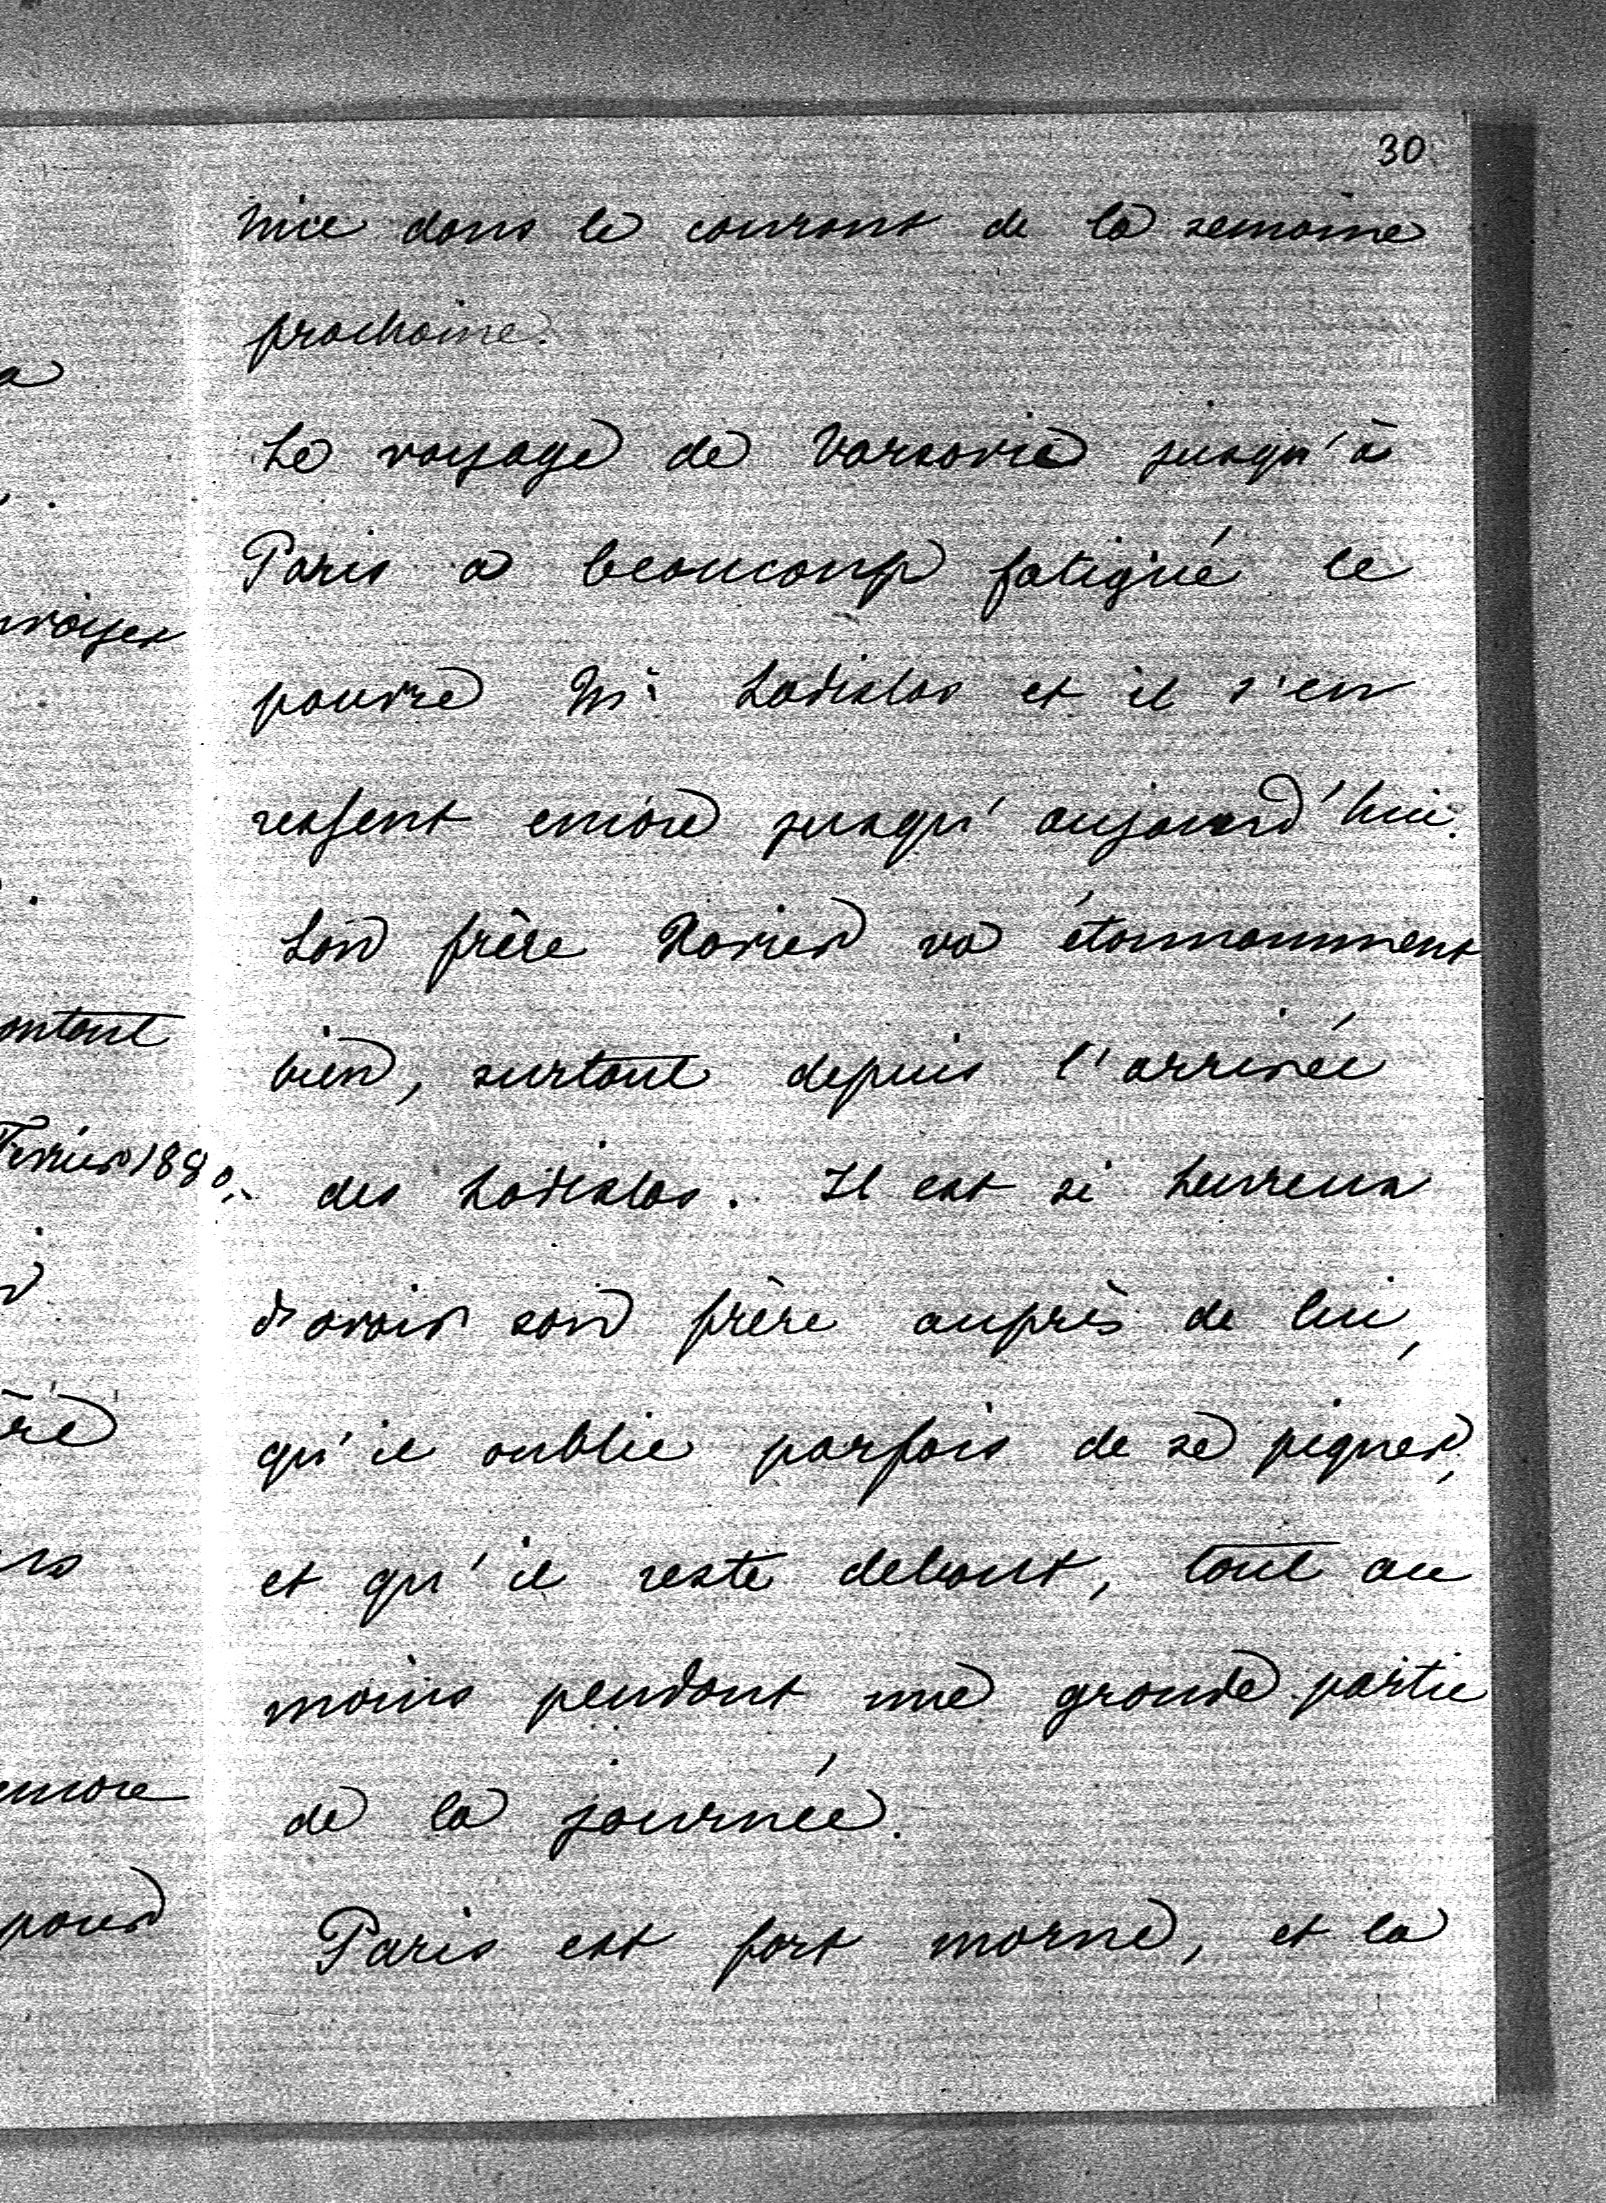 30
Nice dans le courant de la semaine
prochaine.
Le voyage de Varsovie jusqu'à
Paris a beaucoup fatigué le
pauvre Mr Ladislas et il s'en
ressent encore jusqu'aujourd'hui.
Son frère Xavier va étonnamment
bien, surtout depuis l'arrivée
des Ladislas. Il est si heureux
d'avoir son frère auprès de lui,
qu'il oublie parfois de se peigner,
et qu'il reste debout, tout au
moins pendant une grande partie
de la journée.
Paris est fort morne, et la